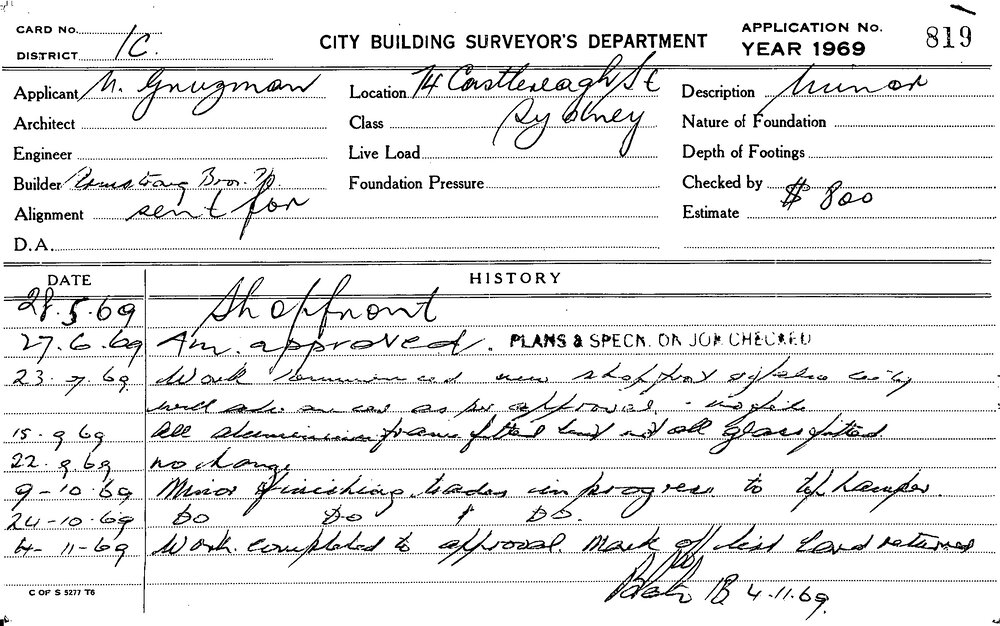 CARD No.
DISTRICT 1C.
CITY BUILDING SURVEYOR'S DEPARTMENT
APPLICATION No. 819
YEAR 1969
Applicant N. Gruzman
Location 74 Castlereagh St
Description Minor
Architect
Class Sydney
Nature of Foundation
Engineer
Live Load
Depth of Footings
Builder Armstrong Bros. P/L.
Foundation Pressure
Checked by
Alignment sent for
Estimate $ 800
D.A.
DATE HISTORY
28.5.69 Shopfront
27.6.69 Am. approved. PLANS & SPECN. ON JOB CHECKED
23.7.69 Work commenced new shopfront
as per approval
15.9.69 All aluminium frame fitted but not all glass fitted.
22.9.69 no change
9-10.69 Minor finishing trades in progress to top hamper.
24-10.69 DO DO DO.
4-11-69 Work completed to approval. Mark off list Card returned
4.11.69.
C OF S 5277 T6